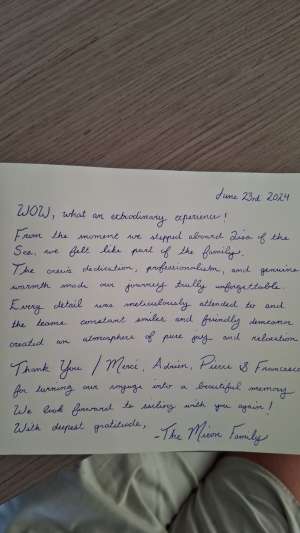 June 23rd 2024
WOW, what an extrodinary experience!
From the moment we stepped aboard Lisa of the
Sea, we felt like part of the family.
The crews dedication, professionalism, and genuine
warmth made our journey trully unforgettable.
Every detail was meticulously attended to and
the teams constant smiles and friendly demeanor
created an atmosphere of pure joy and relaxation
Thank You / Merci, Adrien, Pierre & Francesco
for turning our voyage into a beautiful memory
We look forward to sailing with you again!
With deepest gratitude,
-The Miron Family